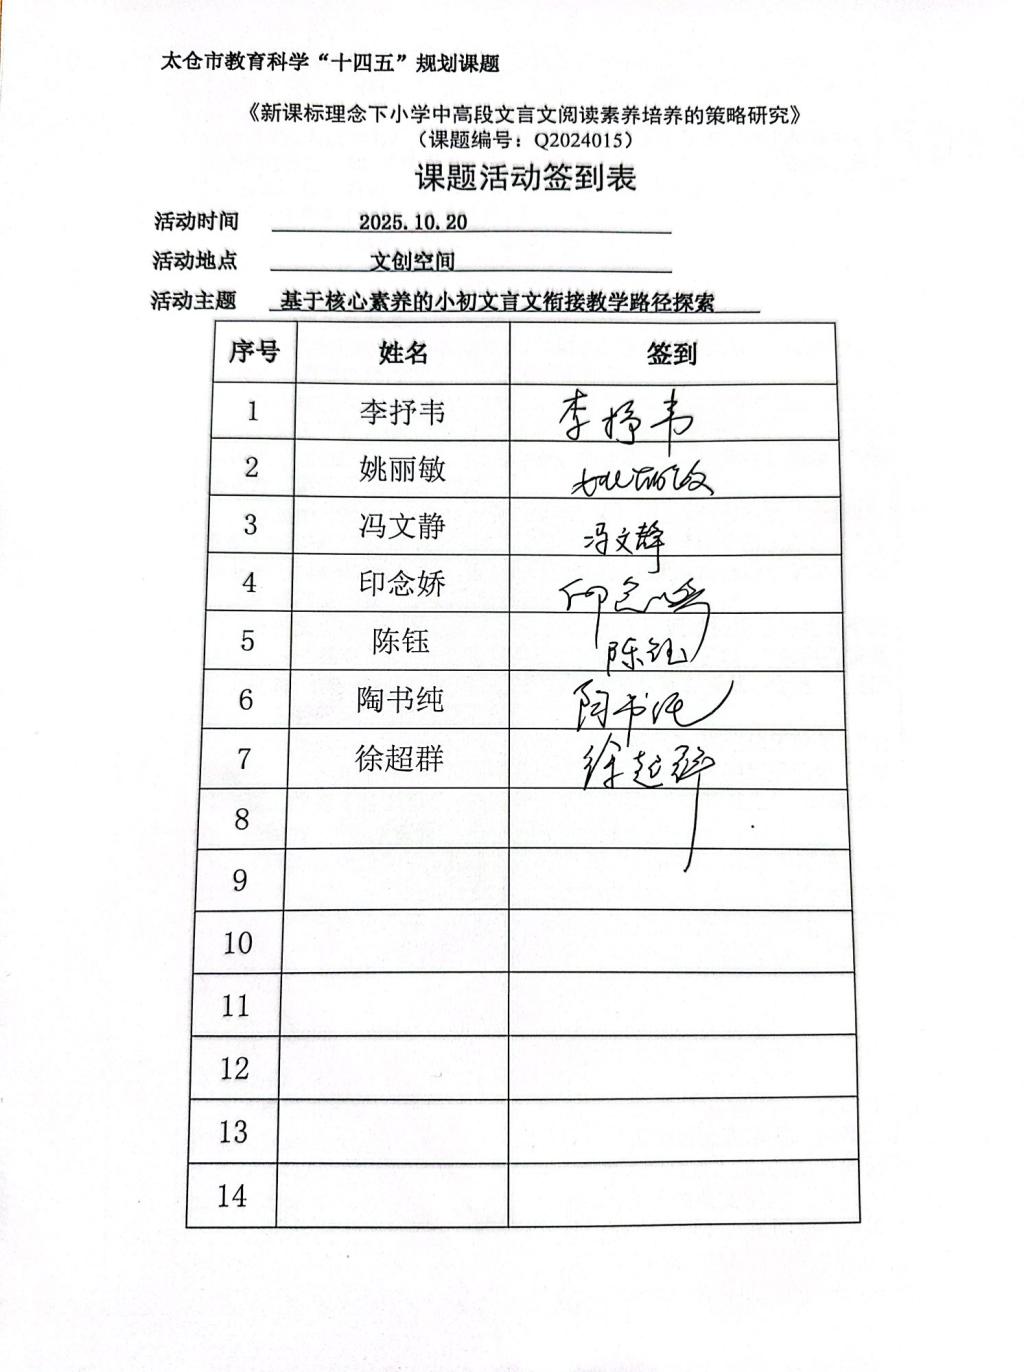 太仓市教育科学“十四五”规划课题
《新课标理念下小学中高段文言文阅读素养培养的策略研究》
（课题编号：Q2024015）
课题活动签到表
活动时间 2025.10.20
活动地点 文创空间
活动主题 基于核心素养的小初文言文衔接教学路径探索
序号 姓名 签到
1 李抒韦 李抒韦
2 姚丽敏 姚丽敏
3 冯文静 冯文静
4 印念娇 印念娇
5 陈钰 陈钰
6 陶书纯 陶书纯
7 徐超群 徐超群
8
9
10
11
12
13
14